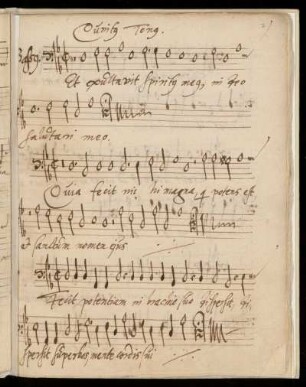 Quinti Toni.
Et exultavit spiritus meus, in Deo
salutari meo.
Quia fecit mi hi magna, q potens est
et sanctum nomen ejus
Fecit potentiam in brachio suo dispersit
superbos mente cordis sui